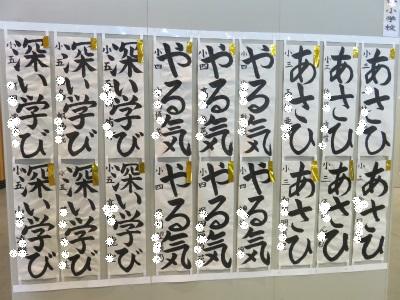 小学校
あさひ
小三
あさひ
小三
あさひ
小三
やる気
小四
やる気
小四
やる気
小四
深い学び
小五
深い学び
小五
深い学び
小五
あさひ
小三
あさひ
小三
あさひ
小三
やる気
小四
やる気
小四
やる気
小四
深い学び
小五
深い学び
小五
深い学び
小五